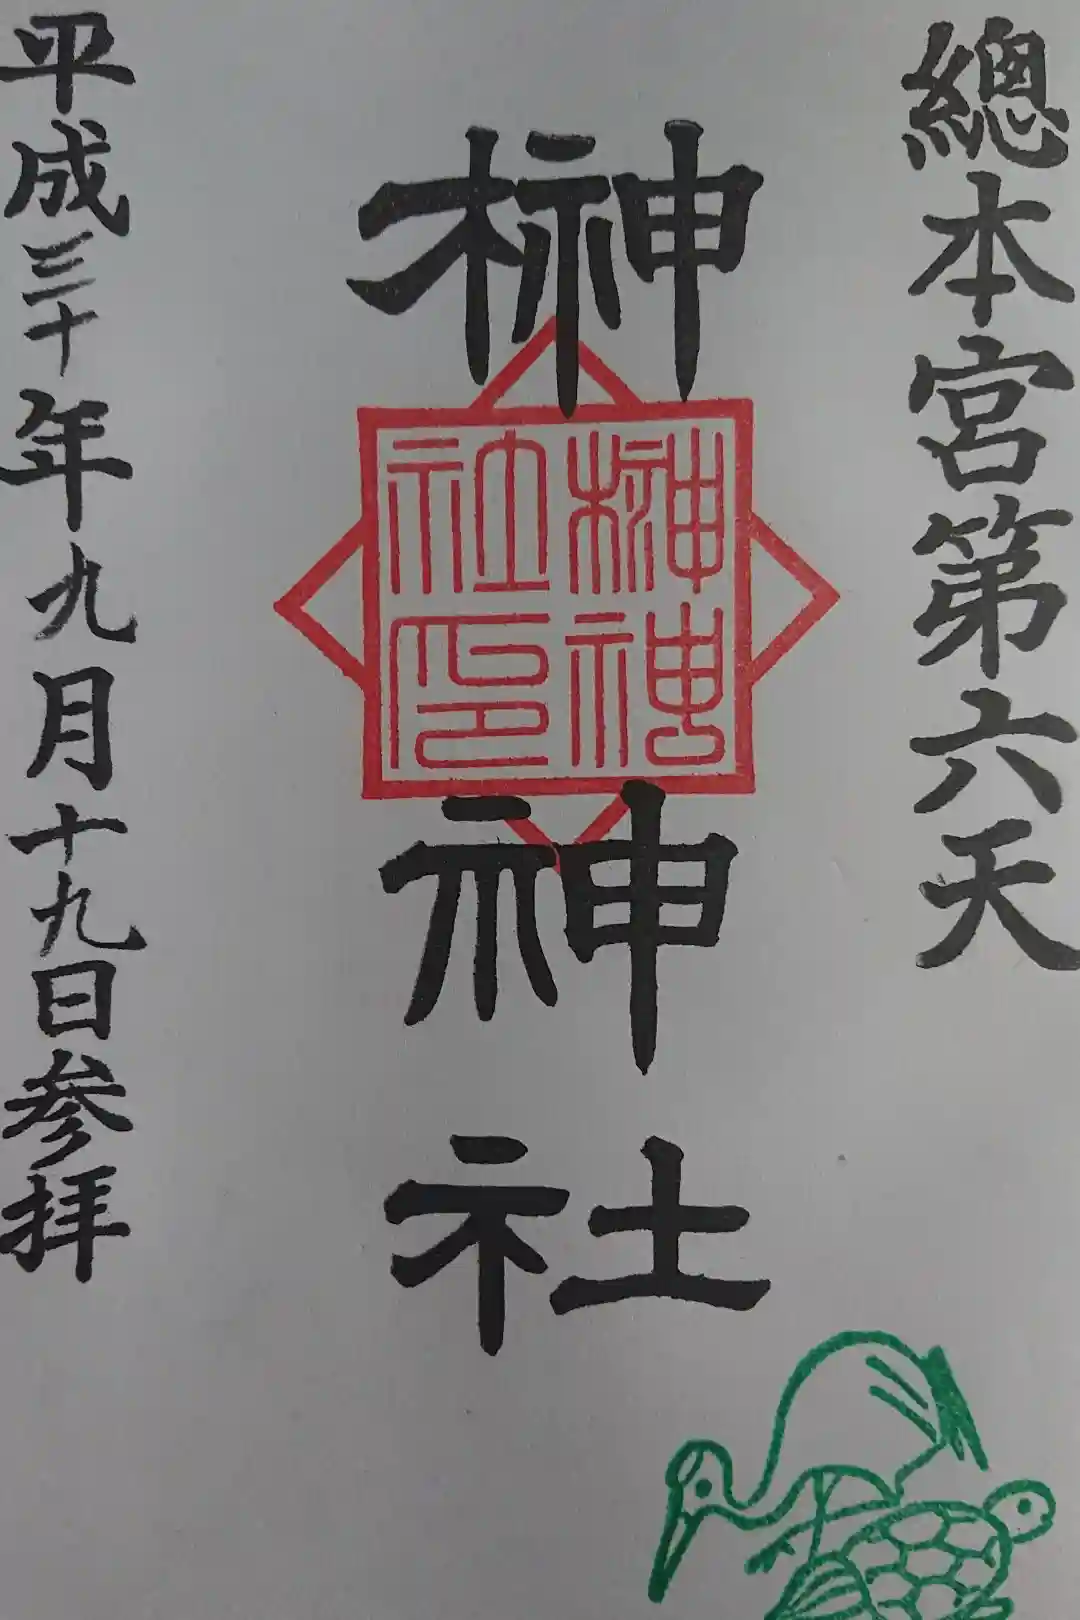 總本宮第六天
榊神社
榊神
社印
平成三十年九月十九日参拝